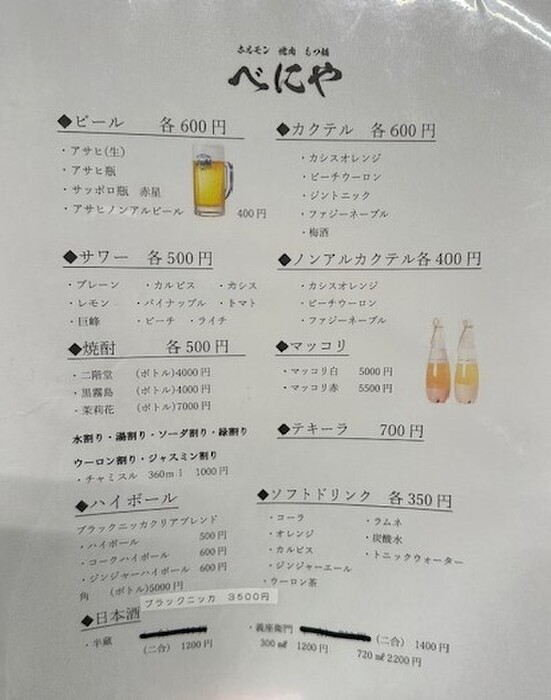 ホルモン 焼肉 もつ鍋
べにや
◆ビール 各600円
・アサヒ(生)
・アサヒ瓶
・サッポロ瓶 赤星
・アサヒノンアルビール 400円
◆サワー 各500円
・プレーン ・カルピス ・カシス
・レモン ・パイナップル ・トマト
・巨峰 ・ピーチ ・ライチ
◆焼酎 各500円
・二階堂 (ボトル)4000円
・黒霧島 (ボトル)4000円
・茉莉花 (ボトル)7000円
水割り・湯割り・ソーダ割り・緑割り
ウーロン割り・ジャスミン割り
・チャミスル 360ml 1000円
◆ハイボール
ブラックニッカクリアブレンド
・ハイボール 500円
・コークハイボール 600円
・ジンジャーハイボール 600円
角 (ボトル)5000円
ブラックニッカ 3500円
◆カクテル 各600円
・カシスオレンジ
・ピーチウーロン
・ジントニック
・ファジーネーブル
・梅酒
◆ノンアルカクテル各400円
・カシスオレンジ
・ピーチウーロン
・ファジーネーブル
◆マッコリ
・マッコリ白 5000円
・マッコリ赤 5500円
◆テキーラ 700円
◆ソフトドリンク 各350円
・コーラ ・ラムネ
・オレンジ ・炭酸水
・カルピス ・トニックウォーター
・ジンジャーエール
・ウーロン茶
◆日本酒
・半蔵
(二合) 1200円
・義左衛門 (二合) 1400円
300㎖ 1200円 720㎖ 2200円